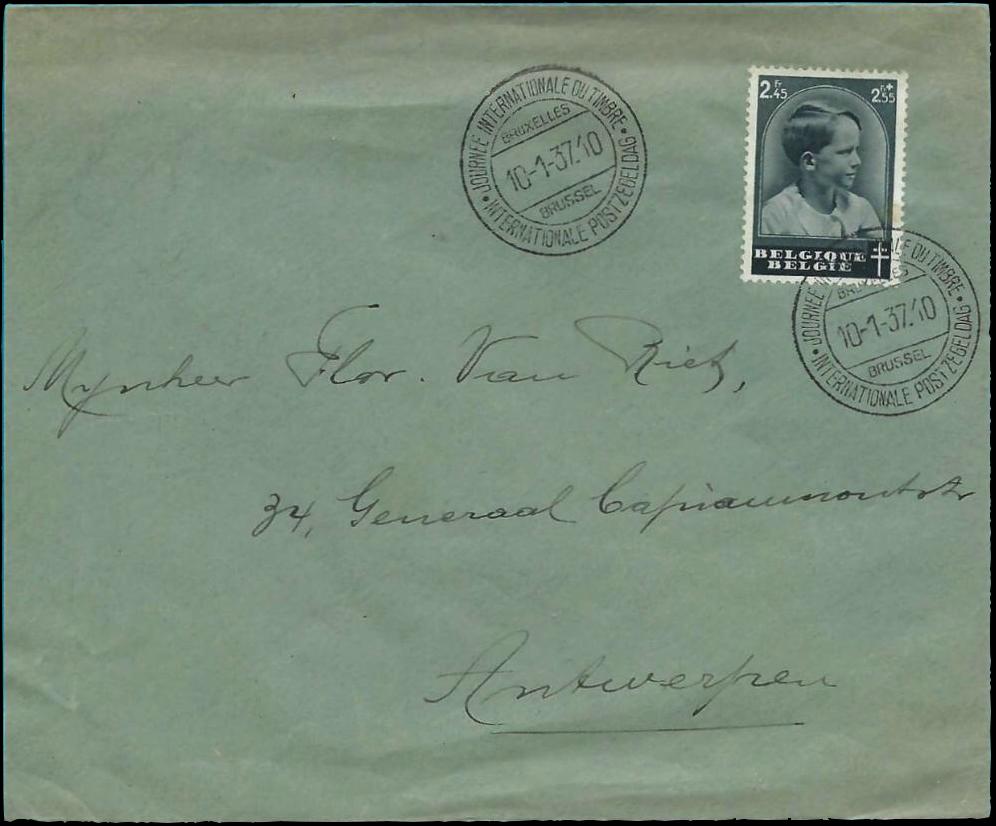 JOURNÉE INTERNATIONALE DU TIMBRE
BRUXELLES
10-1-37.10
BRUSSEL
INTERNATIONALE POSTZEGELDAG
2 Fr 45
2 Fr + 55
BELGIQUE
BELGIE
JOURNÉE INTERNATIONALE DU TIMBRE
BRUXELLES
10-1-37.10
BRUSSEL
INTERNATIONALE POSTZEGELDAG
Mynheer Flor. Van Riet,
34, Generaal Capiaumontstr
Antwerpen